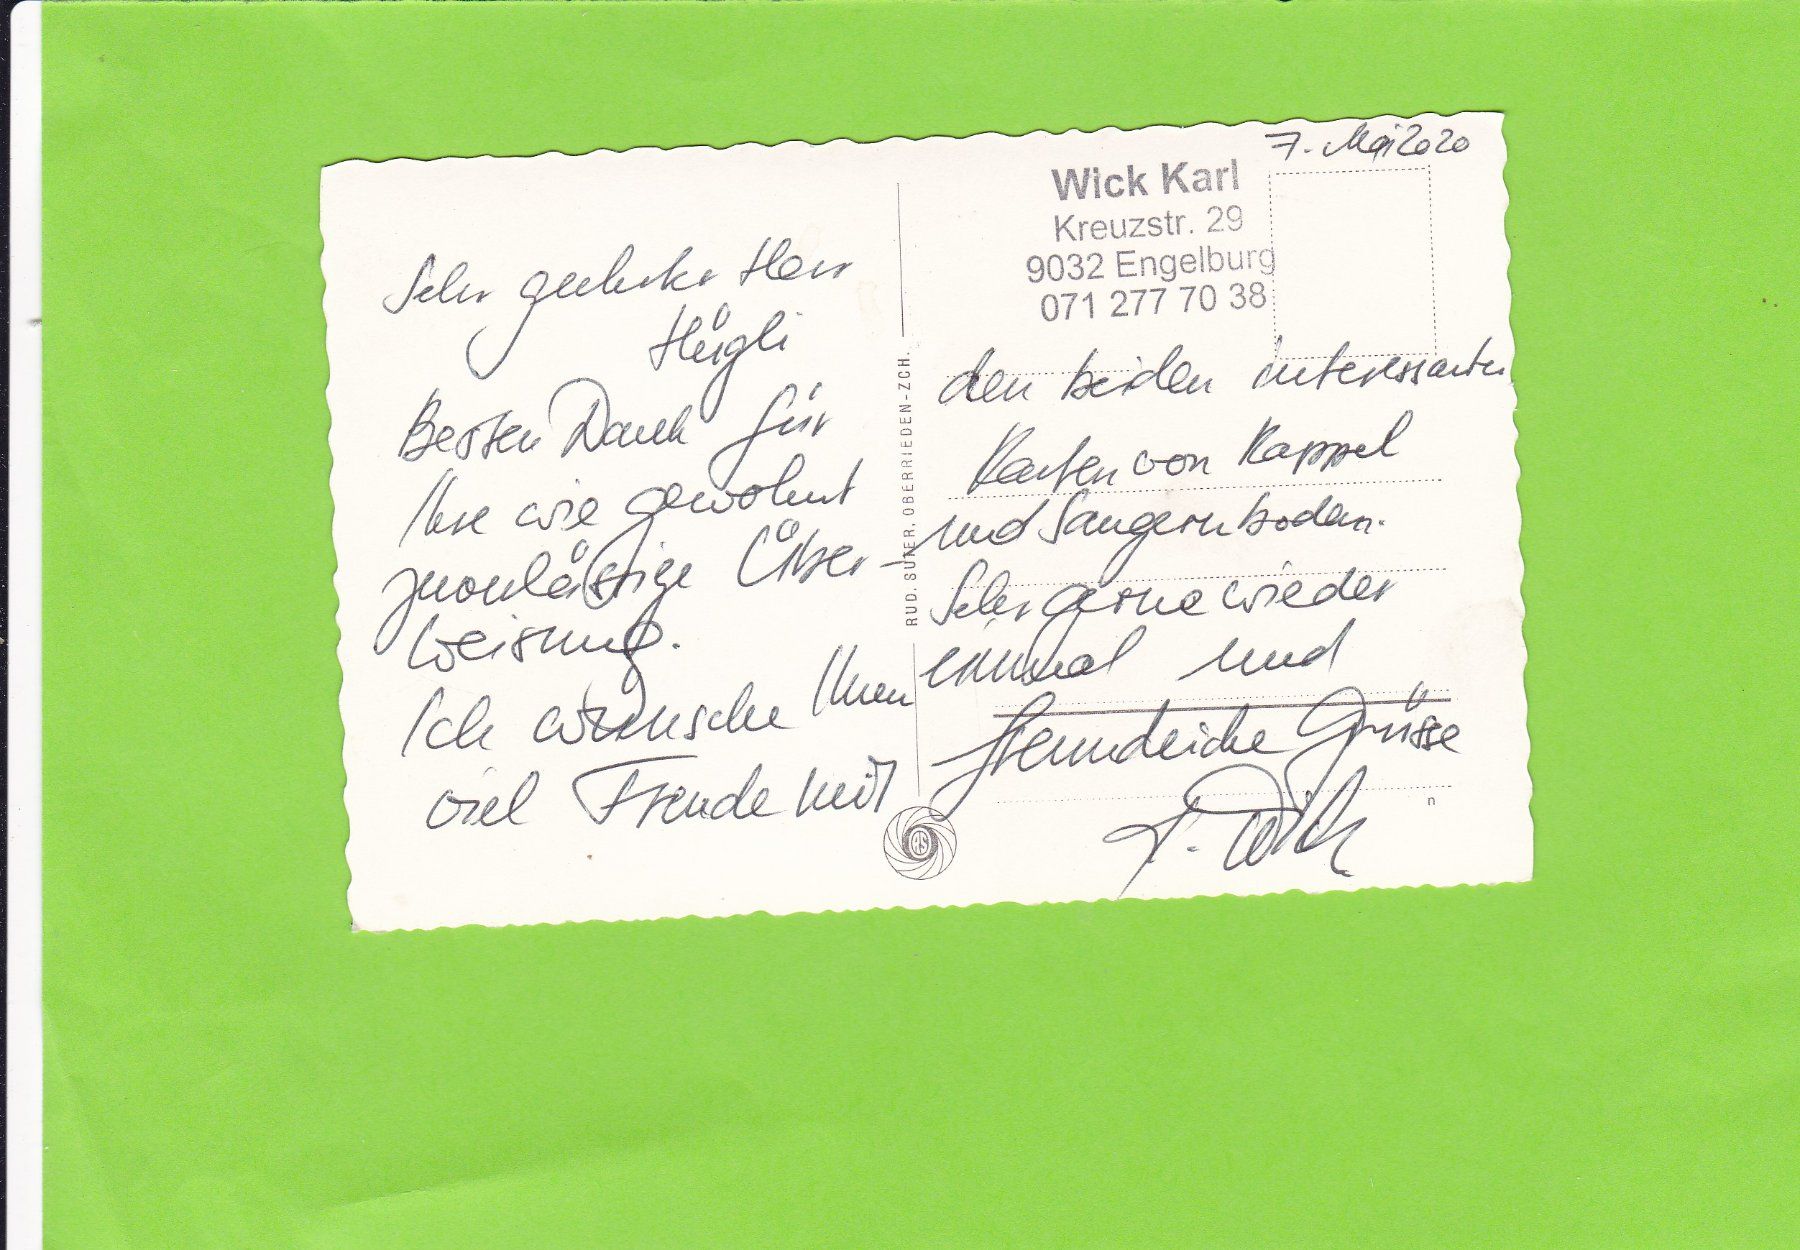 7. Mai 2020
Wick Karl
Kreuzstr. 29
9032 Engelburg
071 277 70 38
Sehr geehrter Herr
Hügli
Besten Dank für
Ihre wie gewohnt
zuverlässige Über-
weisung.
Ich wünsche Ihnen
viel Freude mit
den beiden interessanten
Karten von Kappel
und Sangernboden.
Sehr gerne wieder
einmal und
freundliche Grüsse
K. Wick
RUD. SUTER, OBERRIEDEN-ZCH.
RS
n